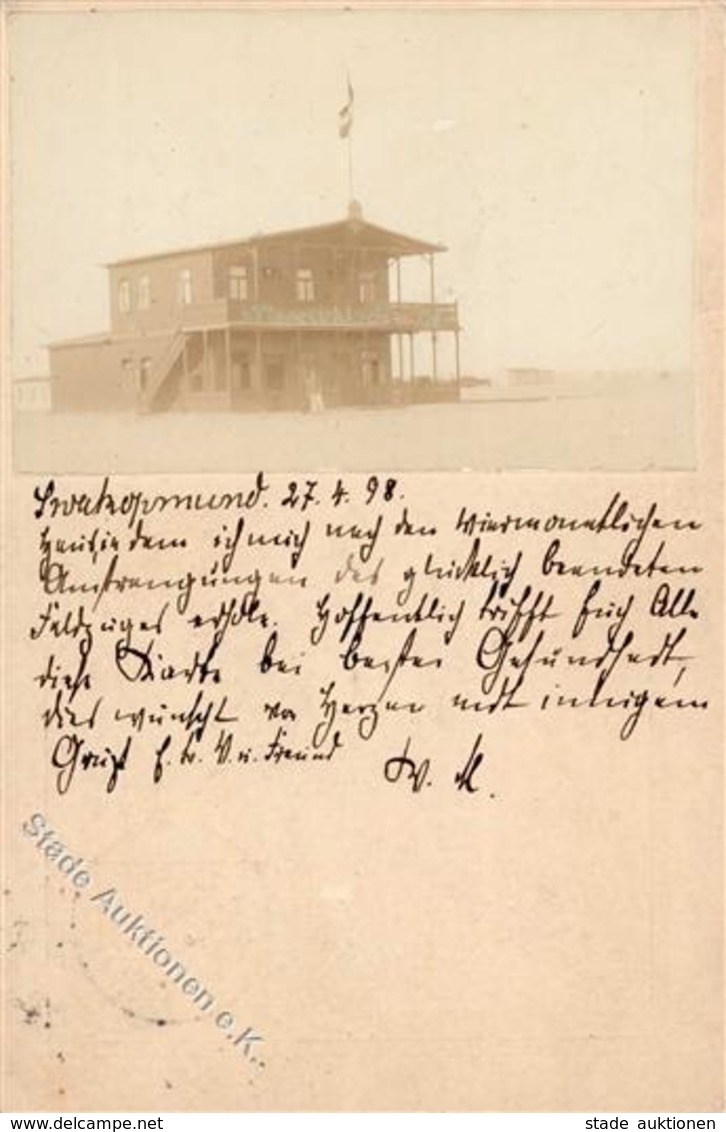 Swakopmund. 27. 4. 98.
in dem ich mich nach den viermonatlichen
Anstrengungen des glücklich beendeten
Feldzuges erhole. Hoffentlich trifft Euch Alle
diese Karte bei bester Gesundheit,
dies wünscht von Herzen mit innigem
Gruß E. tr. V. u. Freund W. M.
Stade Auktionen e.K.
www.delcampe.net
stade auktionen